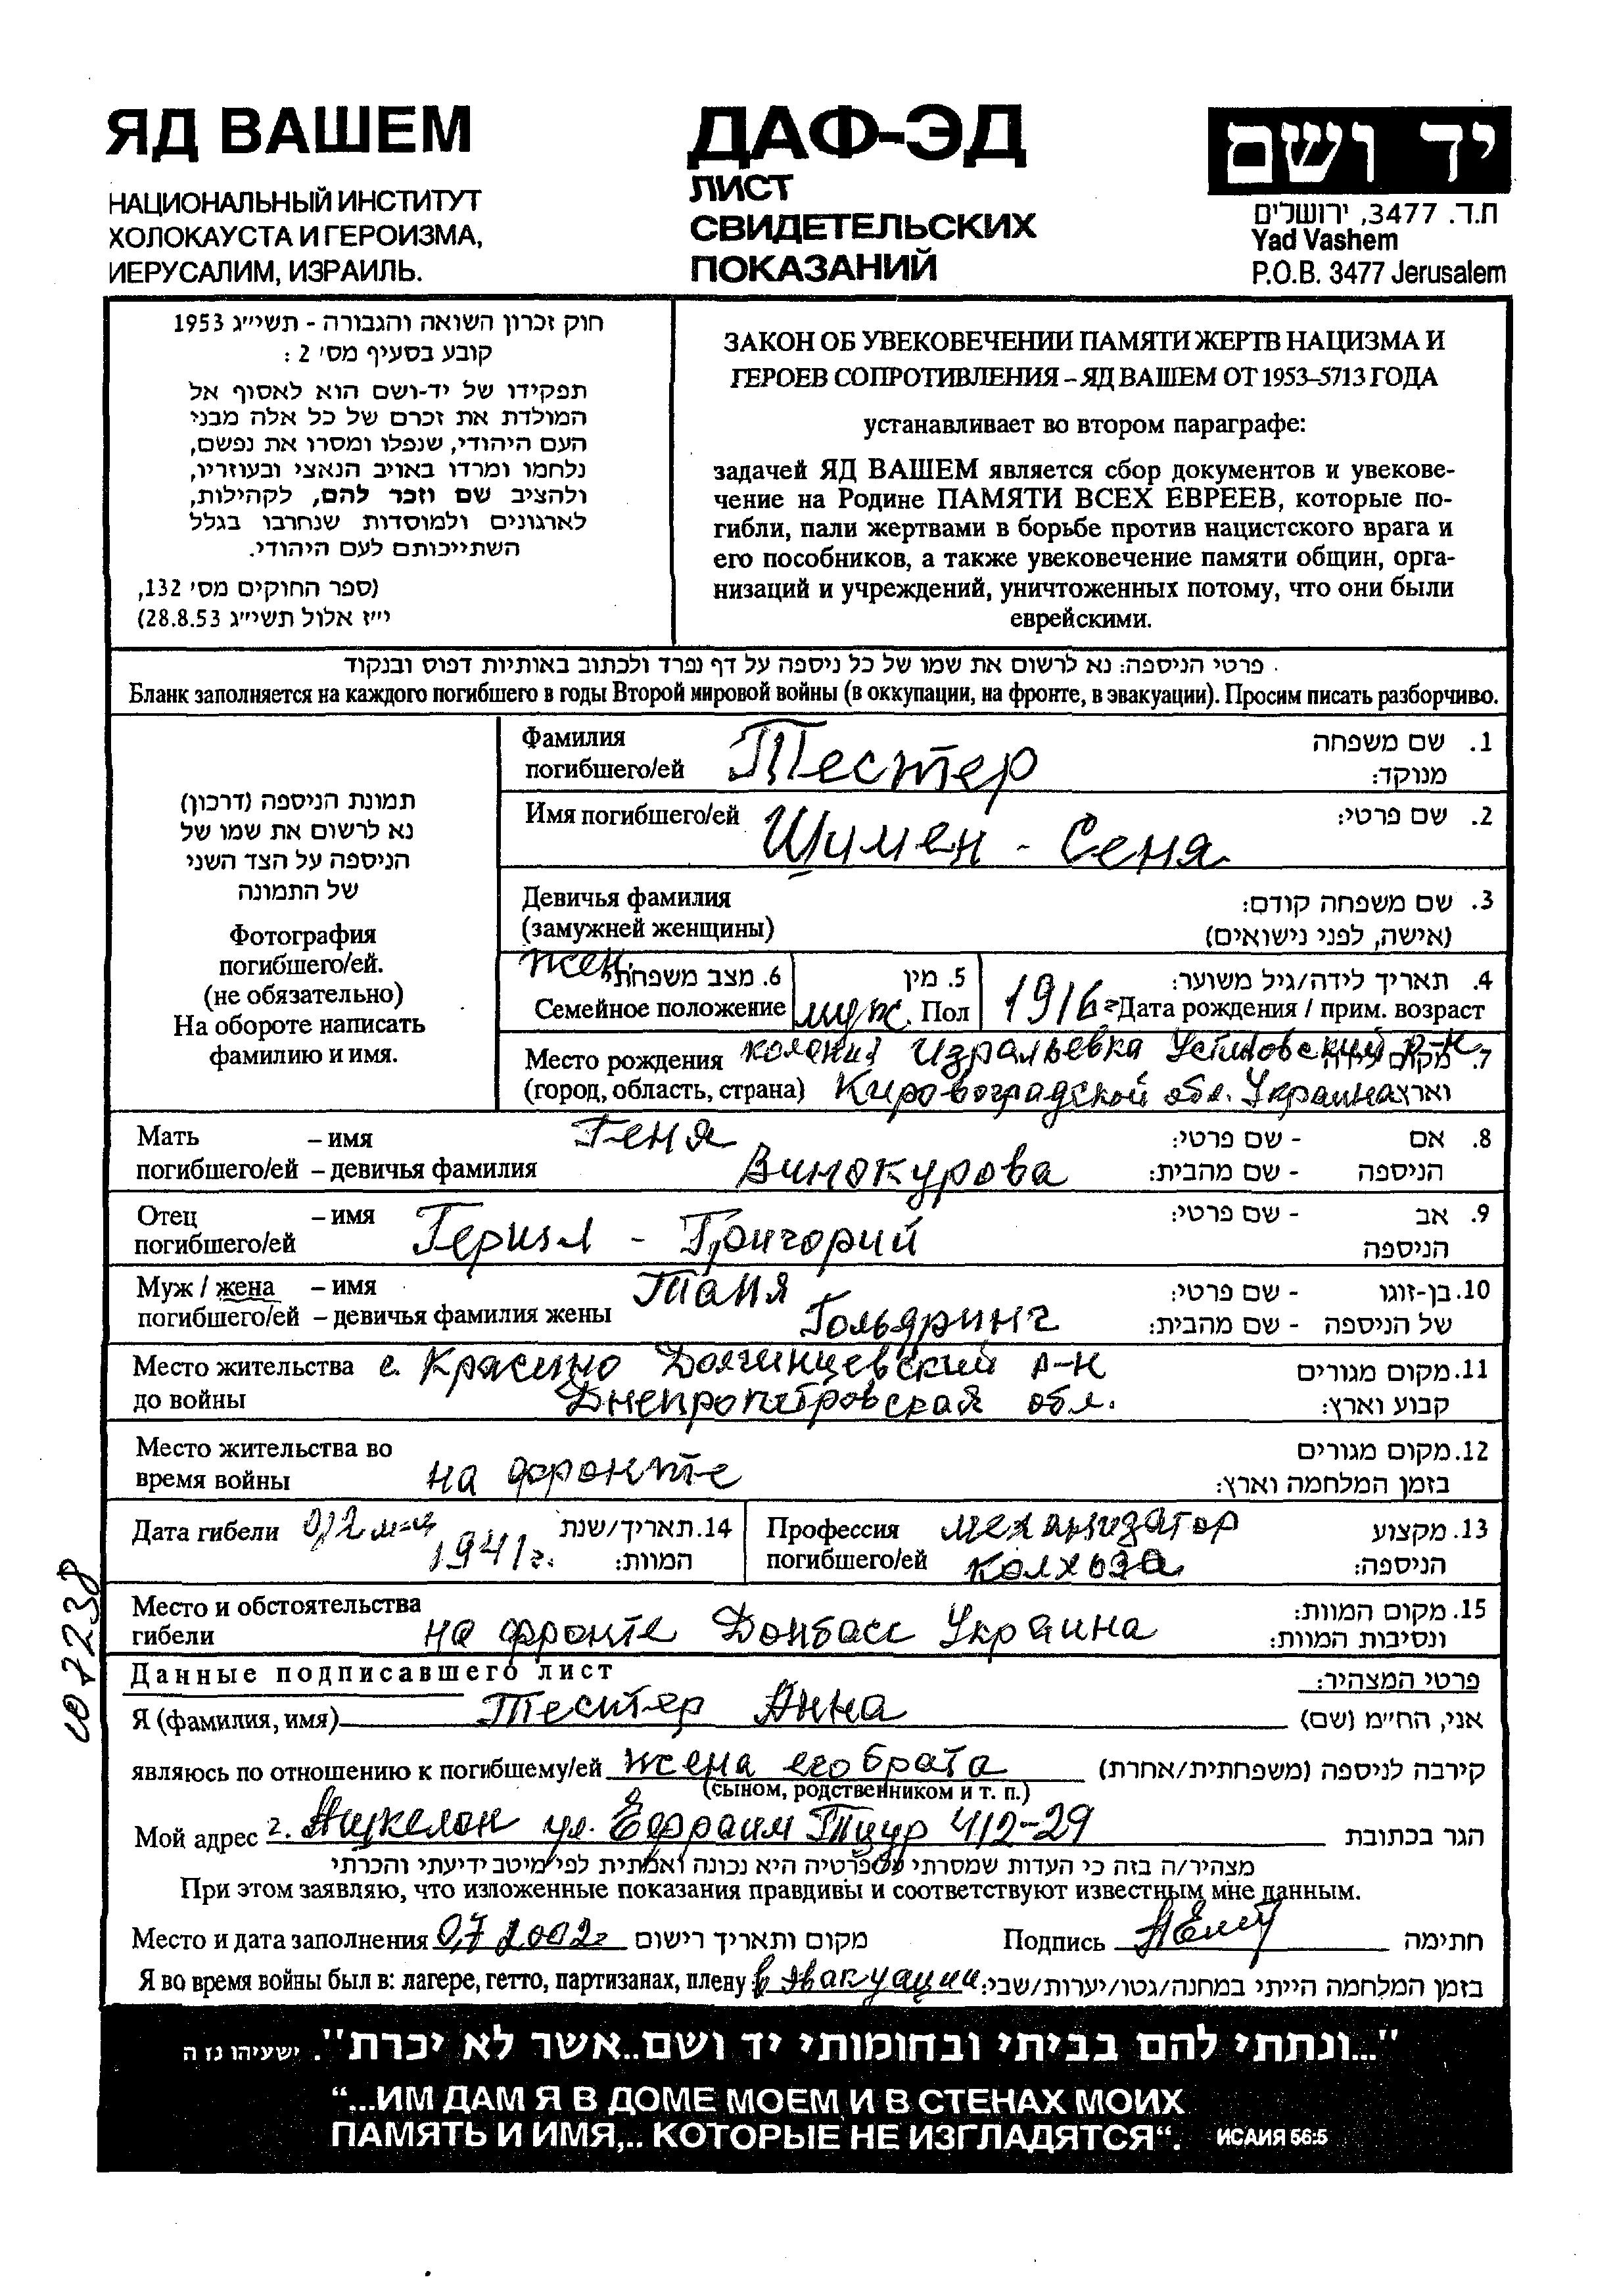 ЯД ВАШЕМ
НАЦИОНАЛЬНЫЙ ИНСТИТУТ
ХОЛОКАУСТА И ГЕРОИЗМА,
ИЕРУСАЛИМ, ИЗРАИЛЬ.
ДАФ-ЭД
ЛИСТ
СВИДЕТЕЛЬСКИХ
ПОКАЗАНИЙ
יד ושם
ת.ד. 3477, ירושלים
Yad Vashem
P.O.B. 3477 Jerusalem
חוק זכרון השואה והגבורה - תשי״ג 1953
קובע בסעיף מס׳ 2 :
תפקידו של יד-ושם הוא לאסוף אל
המולדת את זכרם של כל אלה מבני
העם היהודי, שנפלו ומסרו את נפשם,
נלחמו ומרדו באויב הנאצי ובעוזריו,
ולהציב שם וזכר להם, לקהילות,
לארגונים ולמוסדות שנחרבו בגלל
השתייכותם לעם היהודי.
(ספר החוקים מס׳ 132,
י״ז אלול תשי״ג 28.8.53)
ЗАКОН ОБ УВЕКОВЕЧЕНИИ ПАМЯТИ ЖЕРТВ НАЦИЗМА И
ГЕРОЕВ СОПРОТИВЛЕНИЯ – ЯД ВАШЕМ ОТ 1953–5713 ГОДА
устанавливает во втором параграфе:
задачей ЯД ВАШЕМ является сбор документов и увекове-
чение на Родине ПАМЯТИ ВСЕХ ЕВРЕЕВ, которые по-
гибли, пали жертвами в борьбе против нацистского врага и
его пособников, а также увековечение памяти общин, орга-
низаций и учреждений, уничтоженных потому, что они были
еврейскими.
פרטי הניספה: נא לרשום את שמו של כל ניספה על דף נפרד ולכתוב באותיות דפוס ובנקוד
Бланк заполняется на каждого погибшего в годы Второй мировой войны (в оккупации, на фронте, в эвакуации). Просим писать разборчиво.
תמונת הניספה (דרכון)
נא לרשום את שמו של
הניספה על הצד השני
של התמונה
Фотография
погибшего/ей.
(не обязательно)
На обороте написать
фамилию и имя.
Фамилия 1. שם משפחה
погибшего/ей Тестер מנוקד:
Имя погибшего/ей Шимен - Сеня 2. שם פרטי:
Девичья фамилия 3. שם משפחה קודם:
(замужней женщины) (אישה, לפני נישואים)
жен. 6. מצב משפחתי 5. מין 4. תאריך לידה/גיל משוער:
Семейное положение муж. Пол 1916г. Дата рождения / прим. возраст
Место рождения колония Изральевка Устиновский р-н 7. מקום לידה
(город, область, страна) Кировоградской обл. Украина וארץ
Мать – имя Геня 8. אם - שם פרטי:
погибшего/ей – девичья фамилия Винокурова הניספה - שם מהבית:
Отец – имя 9. אב - שם פרטי:
погибшего/ей Гершл - Григорий הניספה
Муж / жена – имя Таня 10. בן-זוגו - שם פרטי:
погибшего/ей – девичья фамилия жены Гольдринг של הניספה - שם מהבית:
Место жительства с. Красино Долгинцевский р-н 11. מקום מגורים
до войны Днепропетровская обл. קבוע וארץ:
Место жительства во 12. מקום מגורים
время войны на фронте בזמן המלחמה וארץ:
Дата гибели 14. תאריך/שנת Профессия механизатор 13. מקצוע
1941г. המוות: погибшего/ей колхоза הניספה:
Место и обстоятельства 15. מקום המוות:
гибели на фронте Донбасс Украина ונסיבות המוות:
Данные подписавшего лист פרטי המצהיר:
Я (фамилия, имя) Тестер Анна אני, הח״מ (שם)
являюсь по отношению к погибшему/ей жена его брата קירבה לניספה (משפחתית/אחרת)
(сыном, родственником и т. п.)
Мой адрес г. Ашкелон ул. Ефраим Тцур 4/2-29 הגר בכתובת
מצהיר/ה בזה כי העדות שמסרתי על פרטיה היא נכונה ואמתית לפי מיטב ידיעתי והכרתי
При этом заявляю, что изложенные показания правдивы и соответствуют известным мне данным.
Место и дата заполнения 0,7 2002г מקום ותאריך רישום Подпись חתימה
Я во время войны был в: лагере, гетто, партизанах, плену в эвакуации בזמן המלחמה הייתי במחנה/גטו/יערות/שבי:
107238
"...ונתתי להם בביתי ובחומותי יד ושם..אשר לא יכרת". ישעיהו נו ה
“...ИМ ДАМ Я В ДОМЕ МОЕМ И В СТЕНАХ МОИХ
ПАМЯТЬ И ИМЯ,.. КОТОРЫЕ НЕ ИЗГЛАДЯТСЯ“. ИСАИЯ 56:5